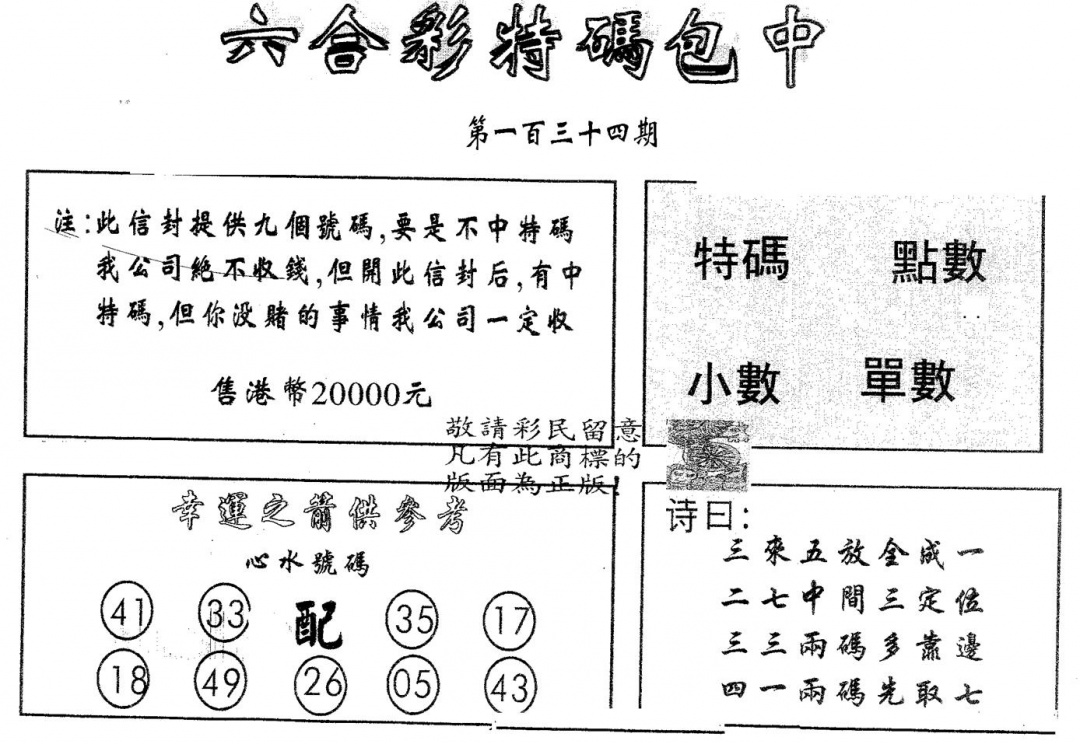 六合彩特碼包中
第一百三十四期
注:此信封提供九個號碼,要是不中特碼
我公司絕不收錢,但開此信封后,有中
特碼,但你没賭的事情我公司一定收
售港幣20000元
特碼 點數
小數 單數
敬請彩民留意
凡有此商標的
版面為正版!
幸運之箭供參考
心水號碼
41 33 配 35 17
18 49 26 05 43
诗曰:
三來五放全成一
二七中間三定位
三三兩碼多靠邊
四一兩碼先取七